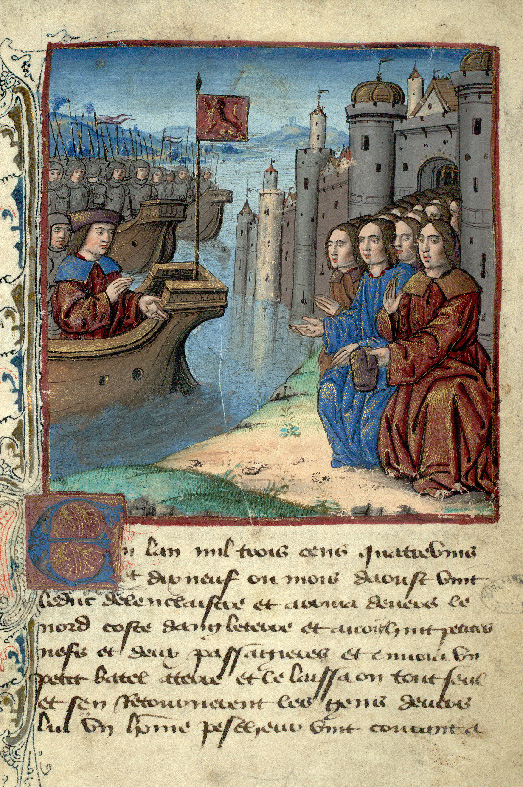 En lan mil trois cens quattrevins
et dix neuf ou mois daoust vint
le duc de lenclastre et arriva devers le
nord coste dangleterre et avoit huit petites
nefs et deux passagieres et envoia un
petit batel a terre et le laissa on tout seul
et sen retournerent les gens devers
lui un homme pescheur vint courant a